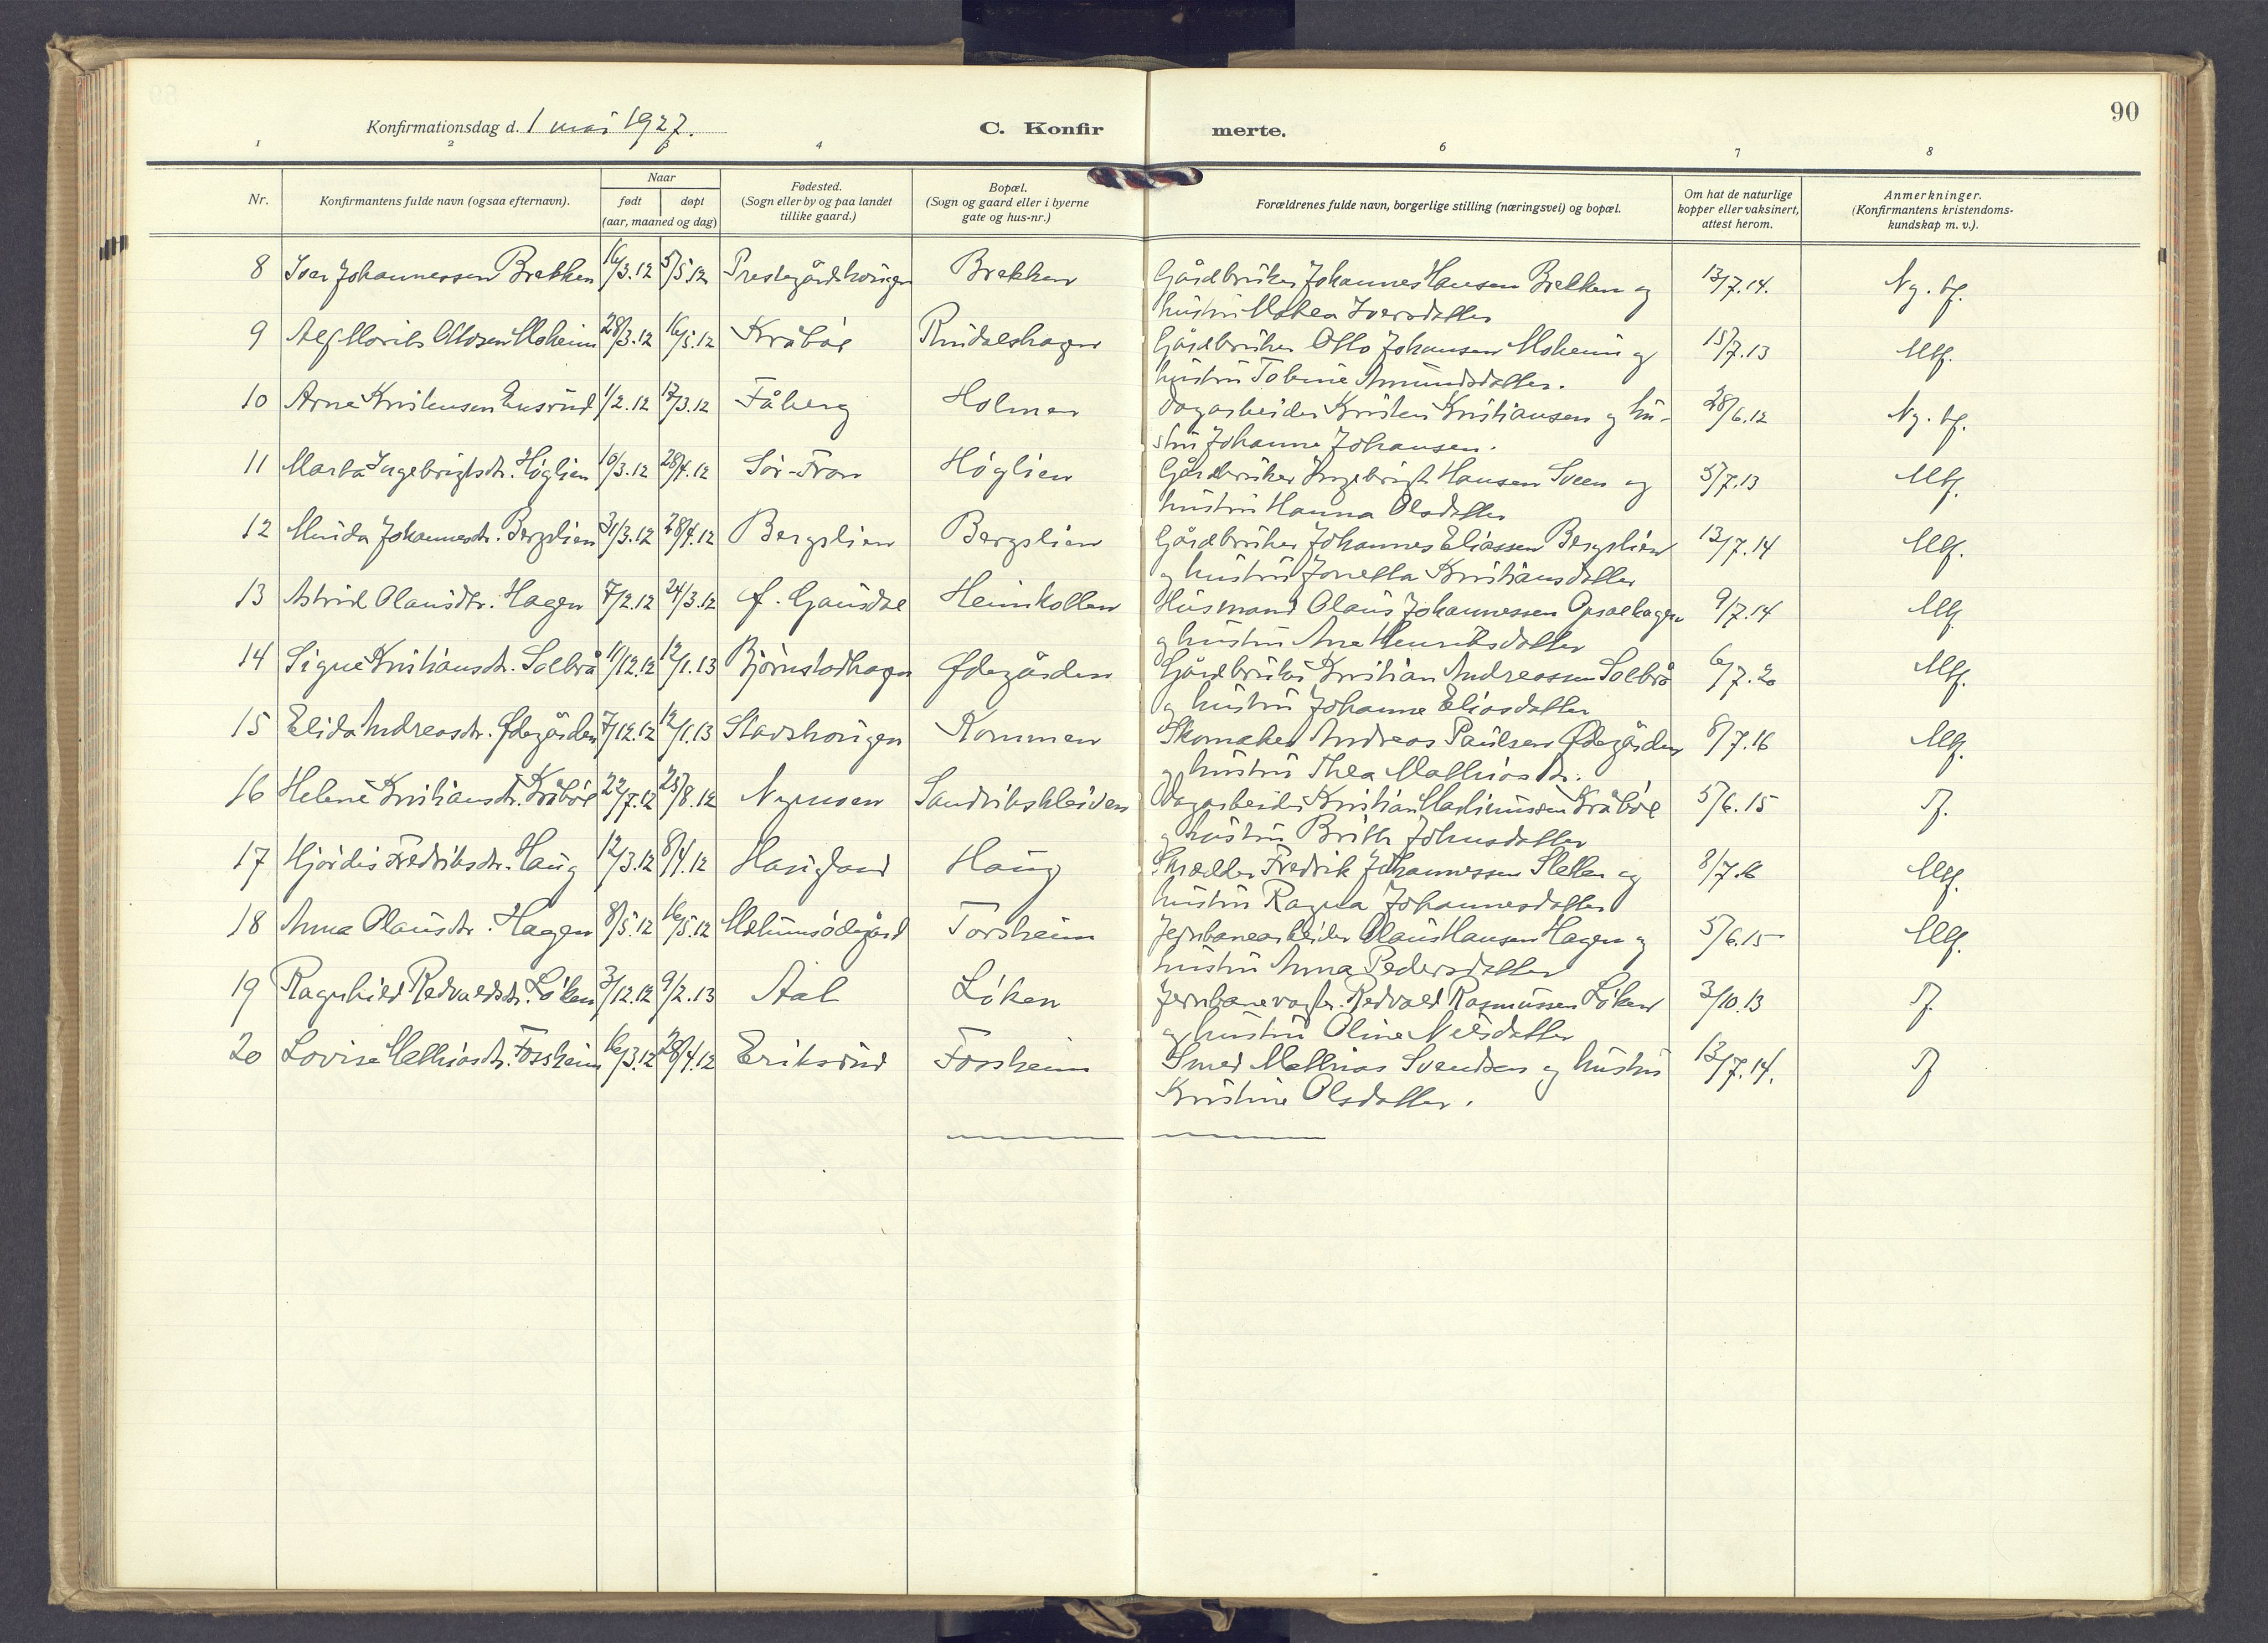 90
Konfirmationsdag d. 1 mai 1927.
C. Konfirmerte.
1 2 3 4 6 7 8
Nr.
Konfirmantens fulde navn (ogsaa efternavn).
Naar
født døpt
(aar, maaned og dag)
Fødested.
(Sogn eller by og paa landet
tillike gaard.)
Bopæl.
(Sogn og gaard eller i byerne
gate og hus-nr.)
Forældrenes fulde navn, borgerlige stilling (næringsvei) og bopæl.
Om hat de naturlige
kopper eller vaksinert,
attest herom.
Anmerkninger.
(Konfirmantens kristendoms-
kundskap m. v.).
8 Iver Johannessen Brekken 16/3.12 5/5.12 Brekken Gårdbruker Johannes Hansen Brekken og 13/7.14. Ng. tf.
hustru Mathea Iversdatter
9 Alf Morits Ottosen Moheim 28/3.12 16/5.12 Kråbøl Rindalshagen Gårdbruker Otto Johansen Moheim og 15/7.13 Mtf.
hustru Tobine Amundsdatter.
10 Arne Kristensen Ensrud 1/2.12 17/3.12 Fåberg Holmen Dagarbeider Kristen Kristiansen og hu- 28/6.12 Ng. tf.
stru Johanne Johansen.
11 Marta Ingebrigtsdtr. Høglien 10/3.12 28/4.12 Sør-Fron Høglien Gårdbruker Ingebrigt Hansen Sveen og 5/7.13 Mtf.
hustru Hanna Olsdatter
12 Johannesdtr. Bergslien 31/3.12 28/4.12 Bergslien Bergslien Gårdbruker Johannes Eliassen Bergslien 13/7.14 Mtf.
og hustru Jonetta Kristiansdatter
13 Astrid Olausdtr. Hagen 7/2.12 24/3.12 Gausdal Heimkollen Husmand Olaus Johannessen Opsalhagen 9/7.14 Mtf.
og hustru Ane Henriksdatter
14 Signe Kristiansdtr. Solbrå 11/12.12 12/1.13 Bjørnstadhagen Ødegården Gårdbruker Kristian Andreassen Solbrå 6/7.20 Mtf.
og hustru Johanne Eliasdatter
15 Elida Andreasdtr. Ødegården 7/12.12 12/1.13 Kommen Skomaker Andreas Paulsen Ødegården 8/7.16 Mtf.
og hustru Thea Mathiasdtr.
16 Helene Kristiansdtr. Kråbøl 22/7.12 25/8.12 Nymoen Sandvikskleiven Dagarbeider Kristian Martinussen Kråbøl 5/6.15 T.
og hustru Brith Johnsdatter
17 Hjørdis Fredriksdtr. Haug 12/3.12 8/4.12 Haug Skrædder Fredrik Johannessen Sletten og 8/7.16 Mtf.
hustru Ragna Johannesdatter
18 Anna Olausdtr. Hagen 8/5.12 16/5.12 Torsheim Jernbanearbeider Olaus Hansen Hagen og 5/6.15 Mtf.
hustru Anna Pedersdatter
19 Ragnhild Redvaldsdtr. Løken 3/12.12 9/2.13 Aal Løken Jernbanevogter Redvald Rasmussen Løken 3/10.13 T.
og hustru Oline Nilsdatter
20 Lovise Mathiasdtr. Fossheim 16/3.12 28/4.12 Eriksrud Fossheim Smed Mathias Svendsen og hustru 13/7.14. T
Kristine Olsdatter.